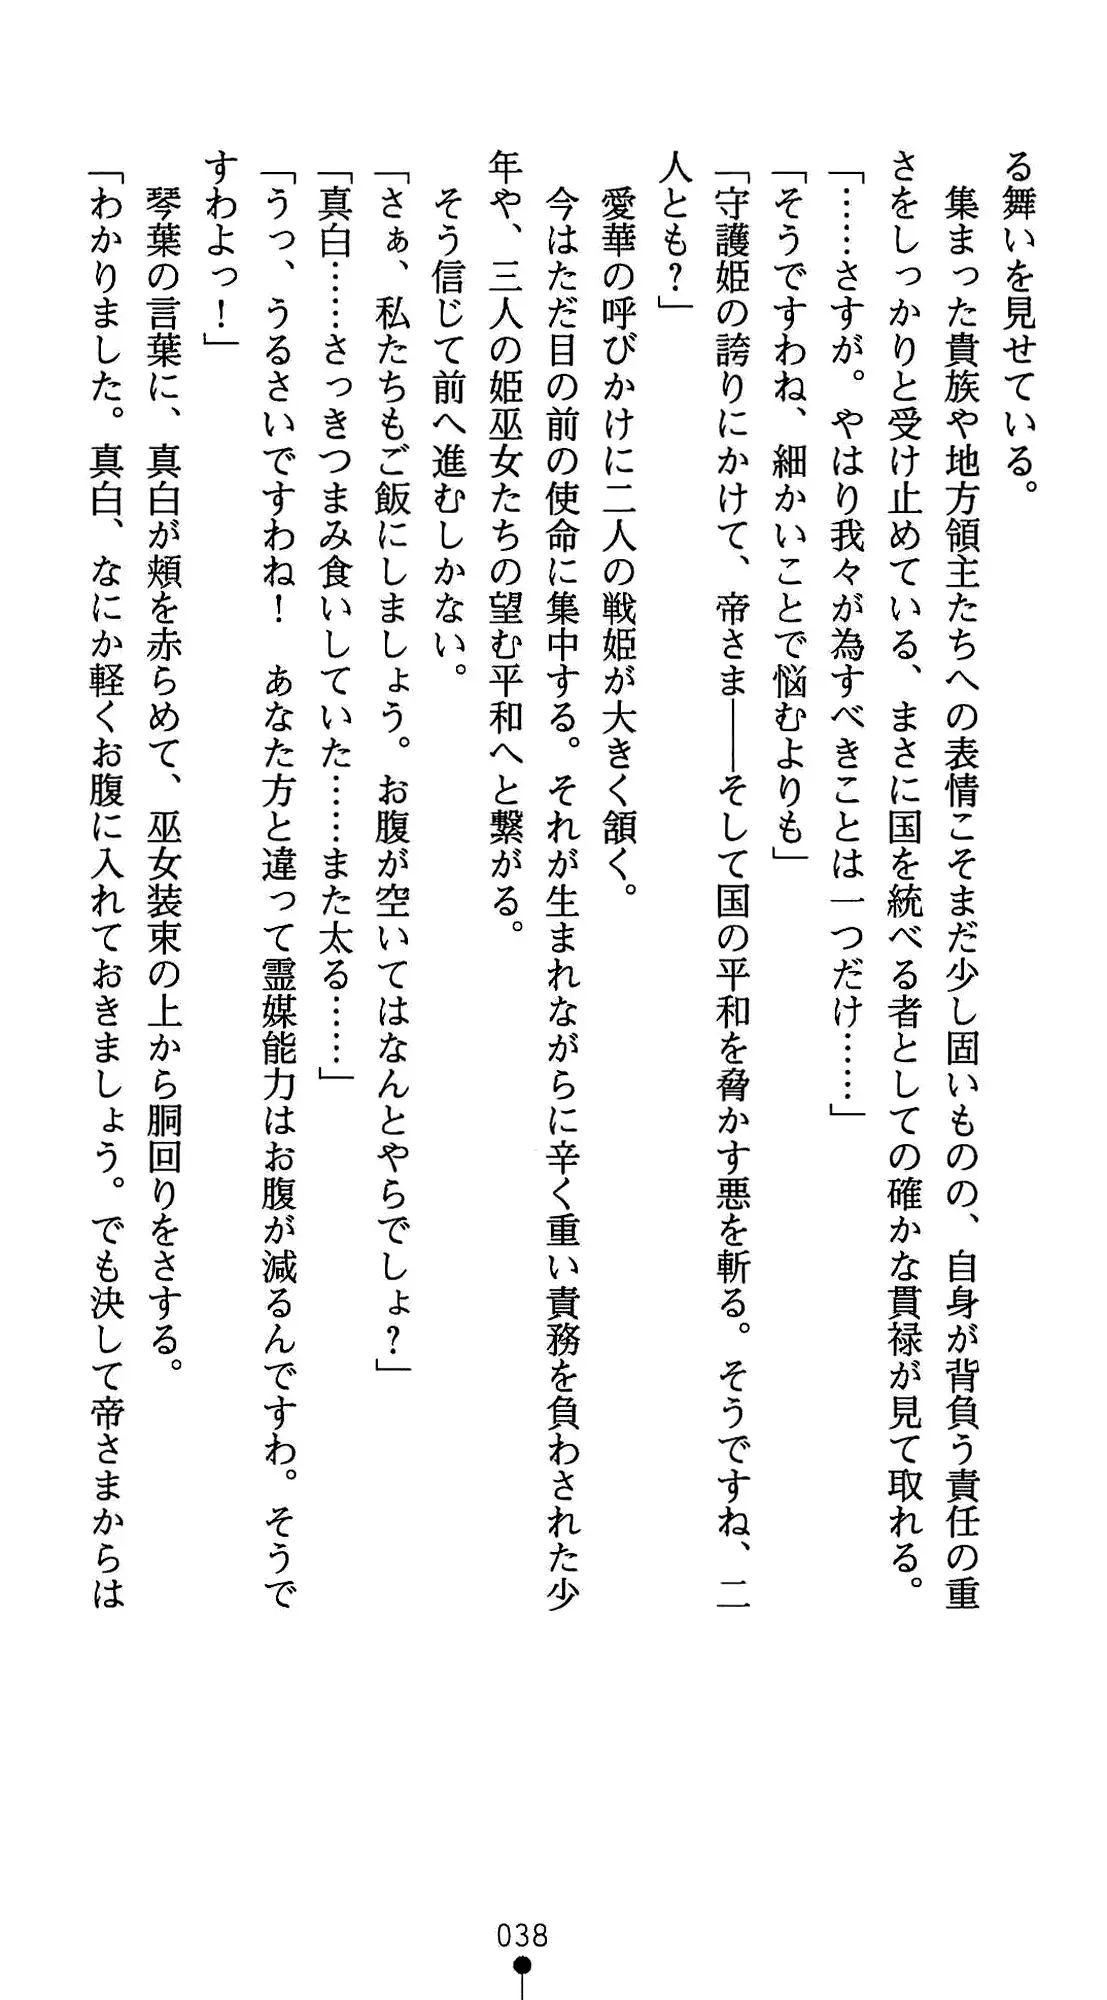 る舞いを見せている。
　集まった貴族や地方領主たちへの表情こそまだ少し固いものの、自身が背負う責任の重
さをしっかりと受け止めている、まさに国を統べる者としての確かな貫禄が見て取れる。
「……さすが。やはり我々が為すべきことは一つだけ……」
「そうですわね、細かいことで悩むよりも」
「守護姫の誇りにかけて、帝さま――そして国の平和を脅かす悪を斬る。そうですね、二
人とも？」
　愛華の呼びかけに二人の戦姫が大きく頷く。
　今はただ目の前の使命に集中する。それが生まれながらに辛く重い責務を負わされた少
年や、三人の姫巫女たちの望む平和へと繋がる。
　そう信じて前へ進むしかない。
「さぁ、私たちもご飯にしましょう。お腹が空いてはなんとやらでしょ？」
「真白……さっきつまみ食いしていた……また太る……」
「うっ、うるさいですわね！　あなた方と違って霊媒能力はお腹が減るんですわ。そうで
すわよっ！」
　琴葉の言葉に、真白が頬を赤らめて、巫女装束の上から胴回りをさする。
「わかりました。真白、なにか軽くお腹に入れておきましょう。でも決して帝さまからは
038